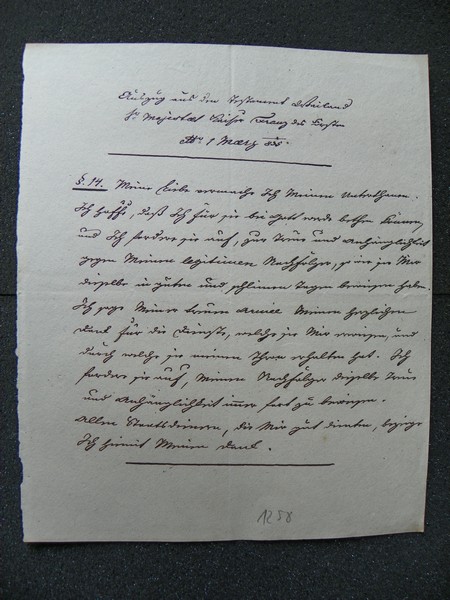 Auszug aus dem Testament weiland
Sr Majestät Kaiser Franz des Ersten
1 März 835.
§. 14. Meine Liebe vermache Ich Meinen Unterthanen.
Ich hoffe, daß Ich für sie bei Gott werde bethen können,
und Ich fordere sie auf, zur Treue und Anhänglichkeit
gegen Meinen legitimen Nachfolger, so wie sie Mir
dieselbe in guten und schlimmen Tagen bewiesen haben.
Ich sage Meiner treuen Armee Meinen herzlichen
Dank für die Dienste, welche sie Mir erwiesen, und
durch welche sie Meinen Thron erhalten hat. Ich
fordere sie auf, Meinem Nachfolger dieselbe Treue
und Anhänglichkeit immer fort zu beweisen.
Allen Staatsdienern, die Mir gut dienten, bezeige
Ich hiemit Meinen Dank.
1258